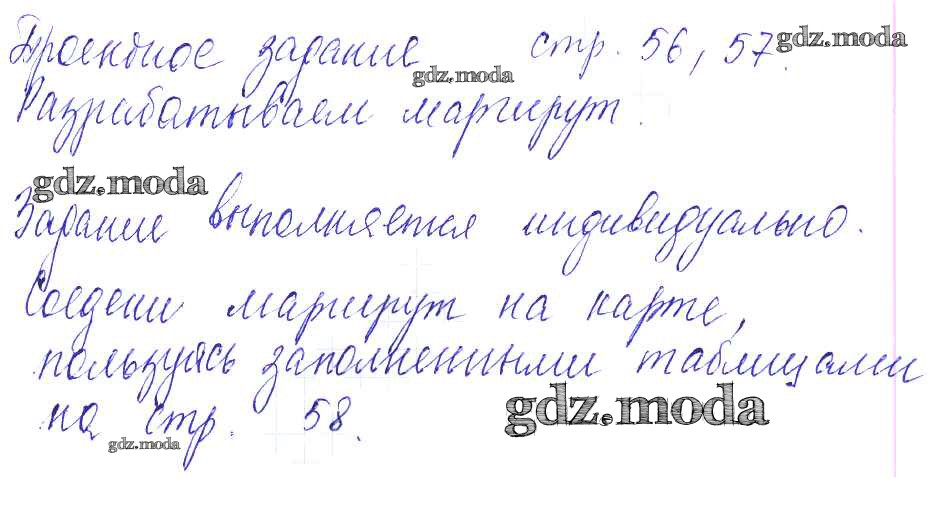 Проектное задание стр. 56, 57. gdz.moda
gdz.moda
Разрабатываем маршрут.
gdz.moda
Задание выполняется индивидуально.
Соедени маршрут на карте,
пользуясь заполненными таблицами
на стр. 58. gdz.moda
gdz.moda